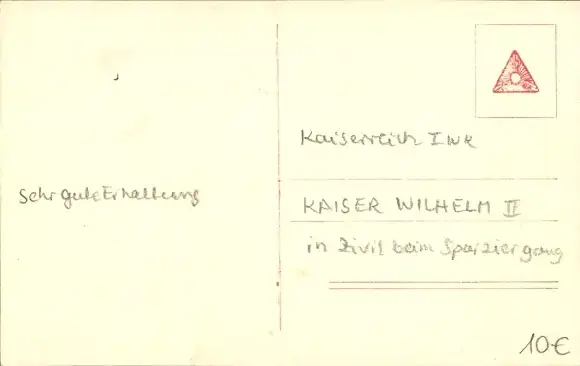 Kaiserreich I WK
Sehr gute Erhaltung
KAISER WILHELM II
in Zivil beim Sparziergang
10€